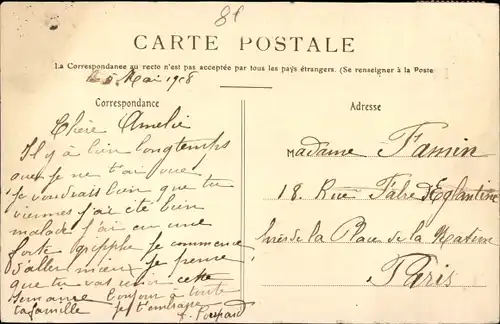 81
CARTE POSTALE
La Correspondance au recto n'est pas acceptée par tous les pays étrangers. (Se renseigner à la Poste
le 5 Mai 1908
Correspondance
Chère Amelie
Il y à bien longtemps
que je ne t'ai vue
je voudrais bien que tu
viennes j'ai été bien
malade j'ai eu une
forte grippe je commence
d'aller mieux je pense
que tu vas venir cette
semaine bonjour a toute
ta famille je t'embrasse
Adresse
Madame Famin
18. Rue Fabre d'Eglantine
près de la Place de la Nation
Paris